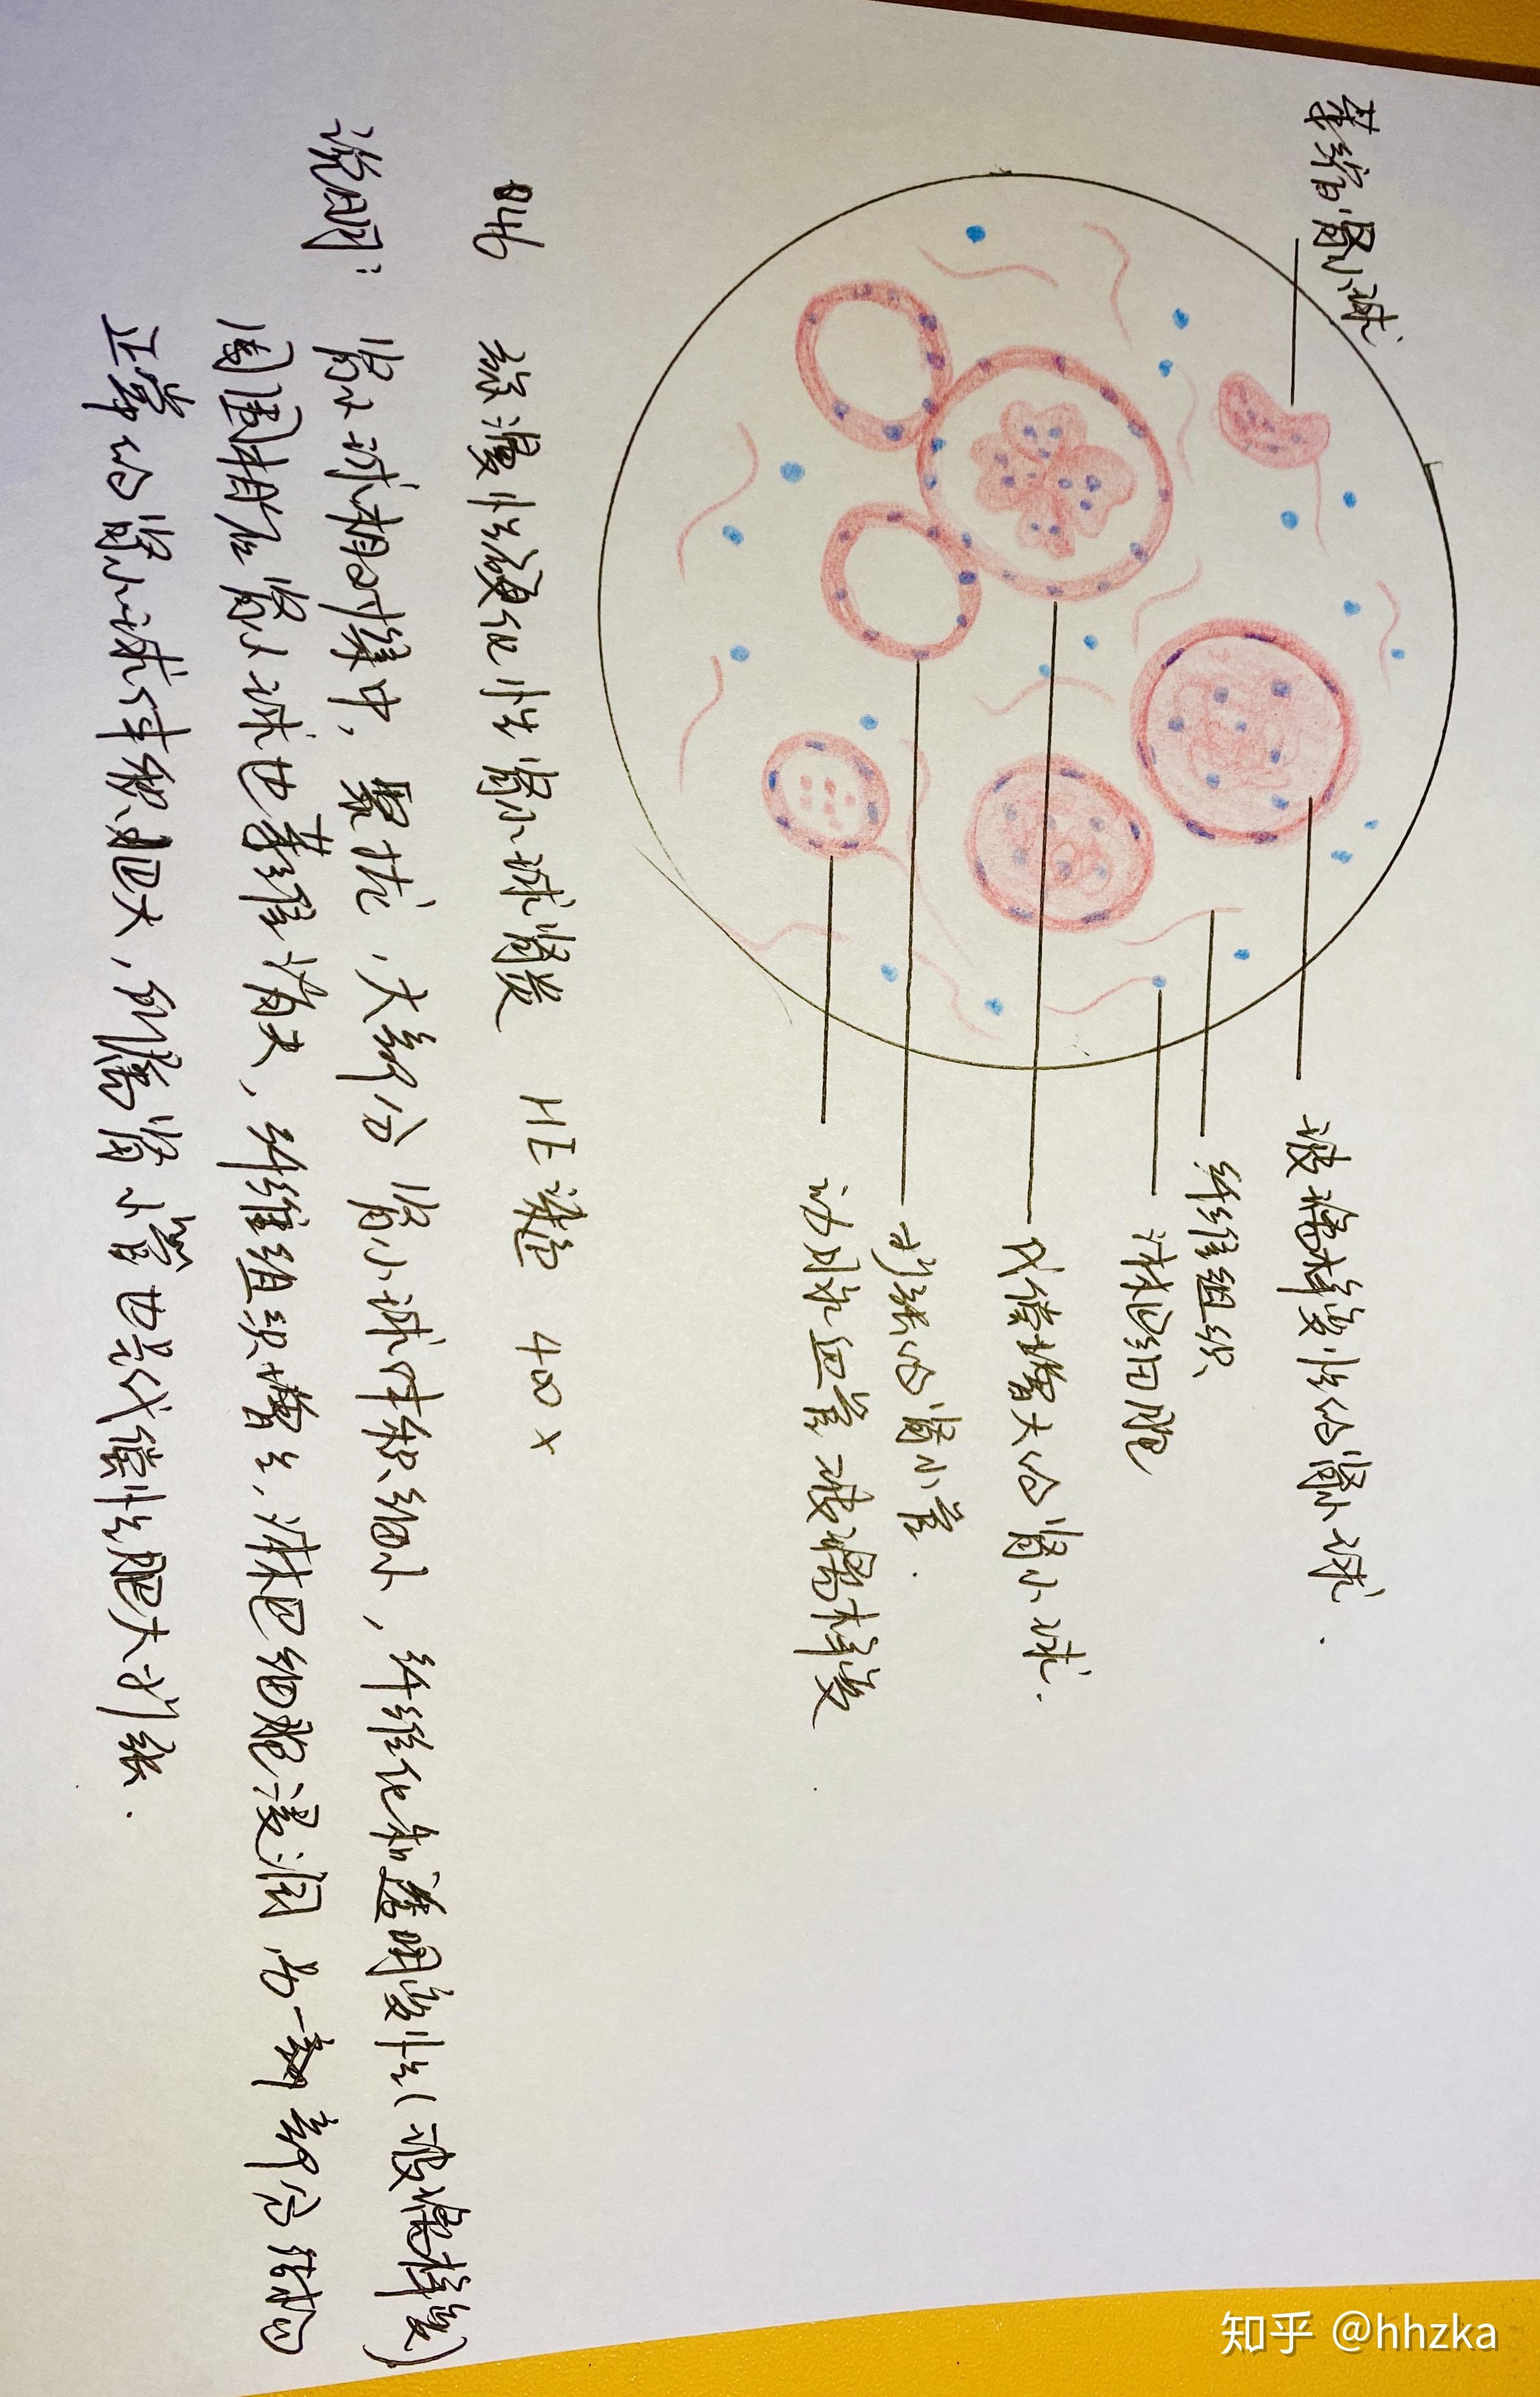 萎缩肾小球
玻璃样变性的肾小球.
纤维组织
淋巴细胞
代偿增大的肾小球.
扩张的肾小管.
动脉血管玻璃样变
046 弥漫性硬化性肾小球肾炎 HE染色 400×
说明: 肾小球相对集中, 聚拢, 大部分肾小球体积缩小, 纤维化和透明变性(玻璃样变)
周围相应肾小球也萎缩消失, 纤维组织增生, 淋巴细胞浸润, 另一部分结构
正常的肾小球体积肥大, 所属肾小管也呈代偿性肥大扩张.
知乎 @hhzka